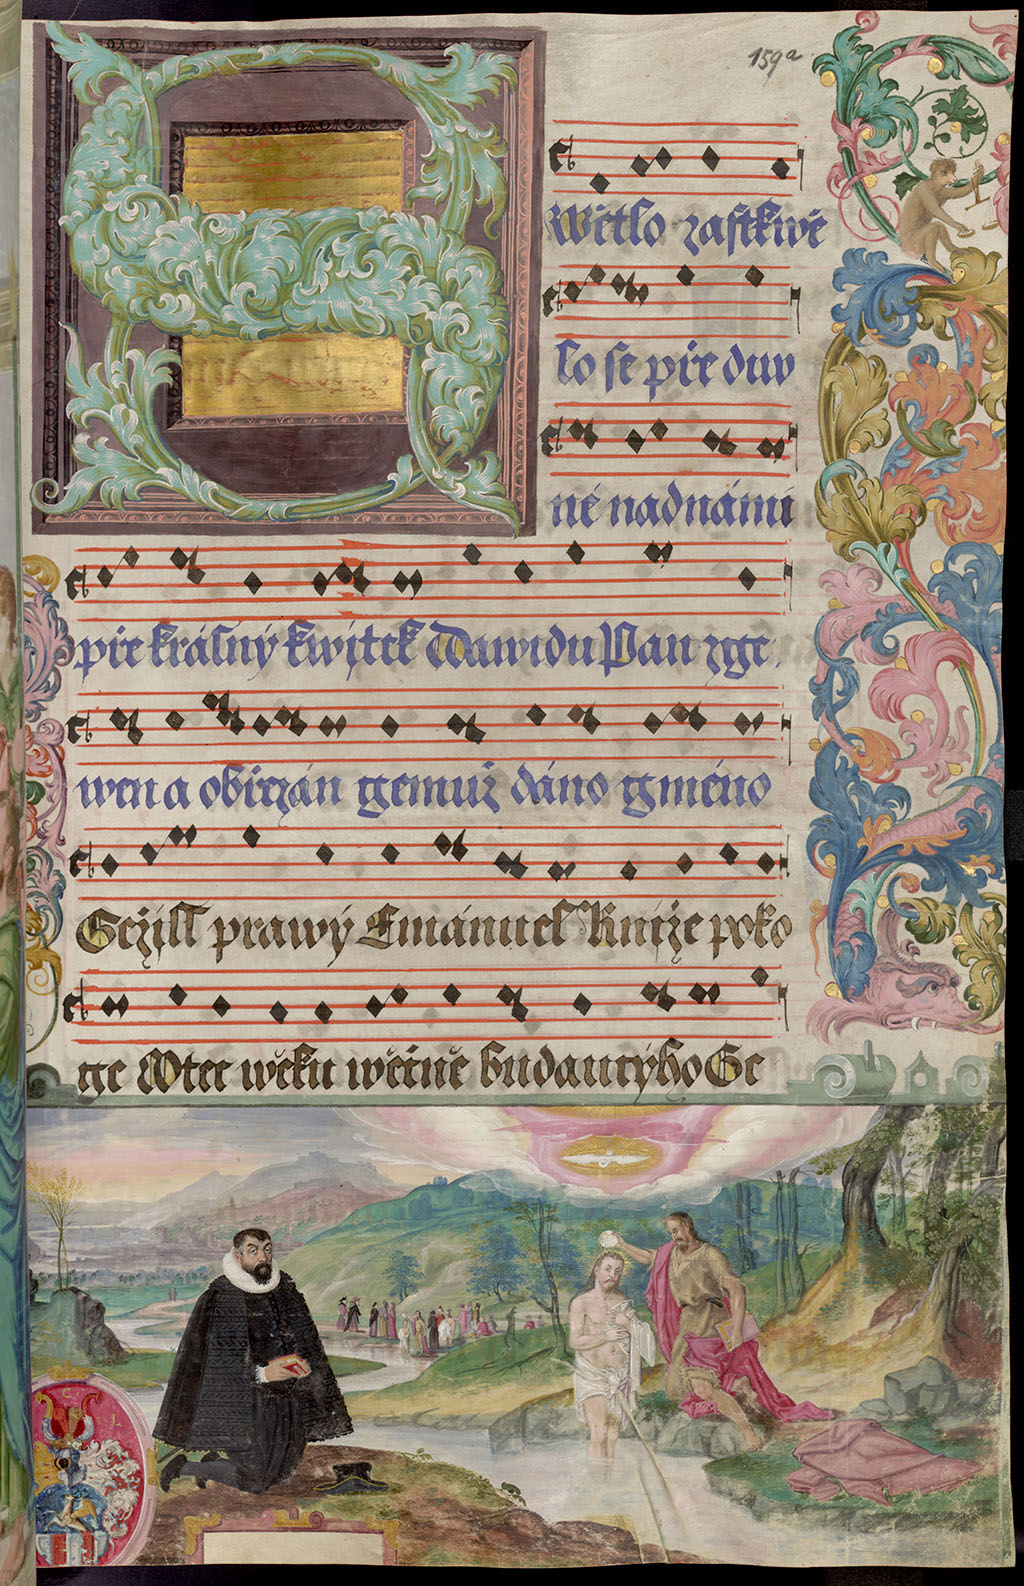 159a
Swětlo zastkwě
lo se pře diw
né nad námi
pře krásný kwjtek Dawidu Pan zge
wen a obřezán gemuž dáno gméno
Gežiss prawý Emánuel Knjže poko
ge Otec wěku wěčně budaucýho Ge